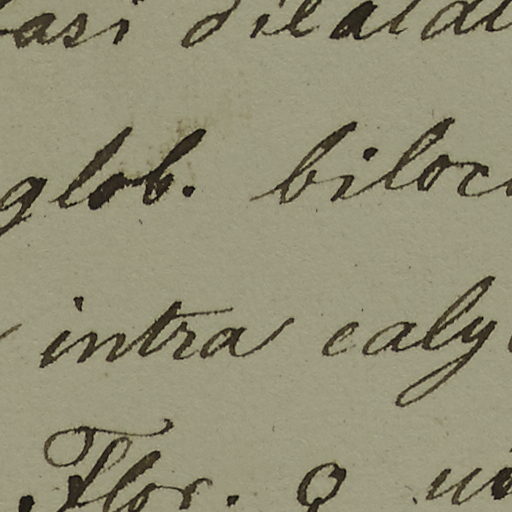 basi dilata
glob. biloc
intra caly
Flor. ♀